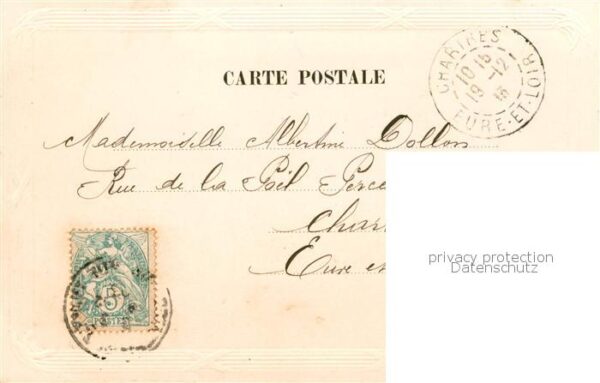 CARTE POSTALE
CHARTRES
10 15
19 - 12
EURE-ET-LOIR
Mademoiselle Albertine Dollon
Rue de la Poël Perce
Char
Eure e
privacy protection
Datenschutz
5
POSTES